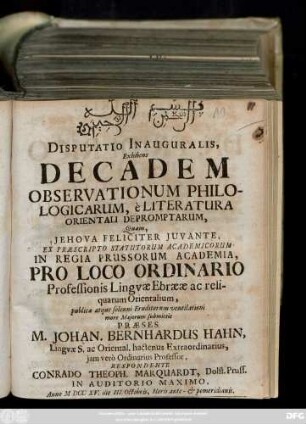 بسم الله الرحمن الرحيم
DISPUTATIO INAUGURALIS,
Exhibens
DECADEM
OBSERVATIONUM PHILO-
LOGICARUM, è LITERATURA
ORIENTALI DEPROMPTARUM,
Quam,
JEHOVA FELICITER JUVANTE,
EX PRÆSCRIPTO STATUTORUM ACADEMICORUM
IN REGIA PRUSSORUM ACADEMIA,
PRO LOCO ORDINARIO
Professionis Lingvæ Ebrææ ac reli-
quarum Orientalium,
publicæ atque solenni Eruditorum ventilationi
more Majorum submittit
PRÆSES
M. JOHAN. BERNHARDUS HAHN,
Lingvæ S. ac Oriental. hactenus Extraordinarius,
jam verò Ordinarius Professor,
RESPONDENTE
CONRADO THEOPH. MARQUARDT, Dolst. Pruss.
IN AUDITORIO MAXIMO,
Anno M DCC XV. die III. Octobris, Horis ante- & pomeridianis.